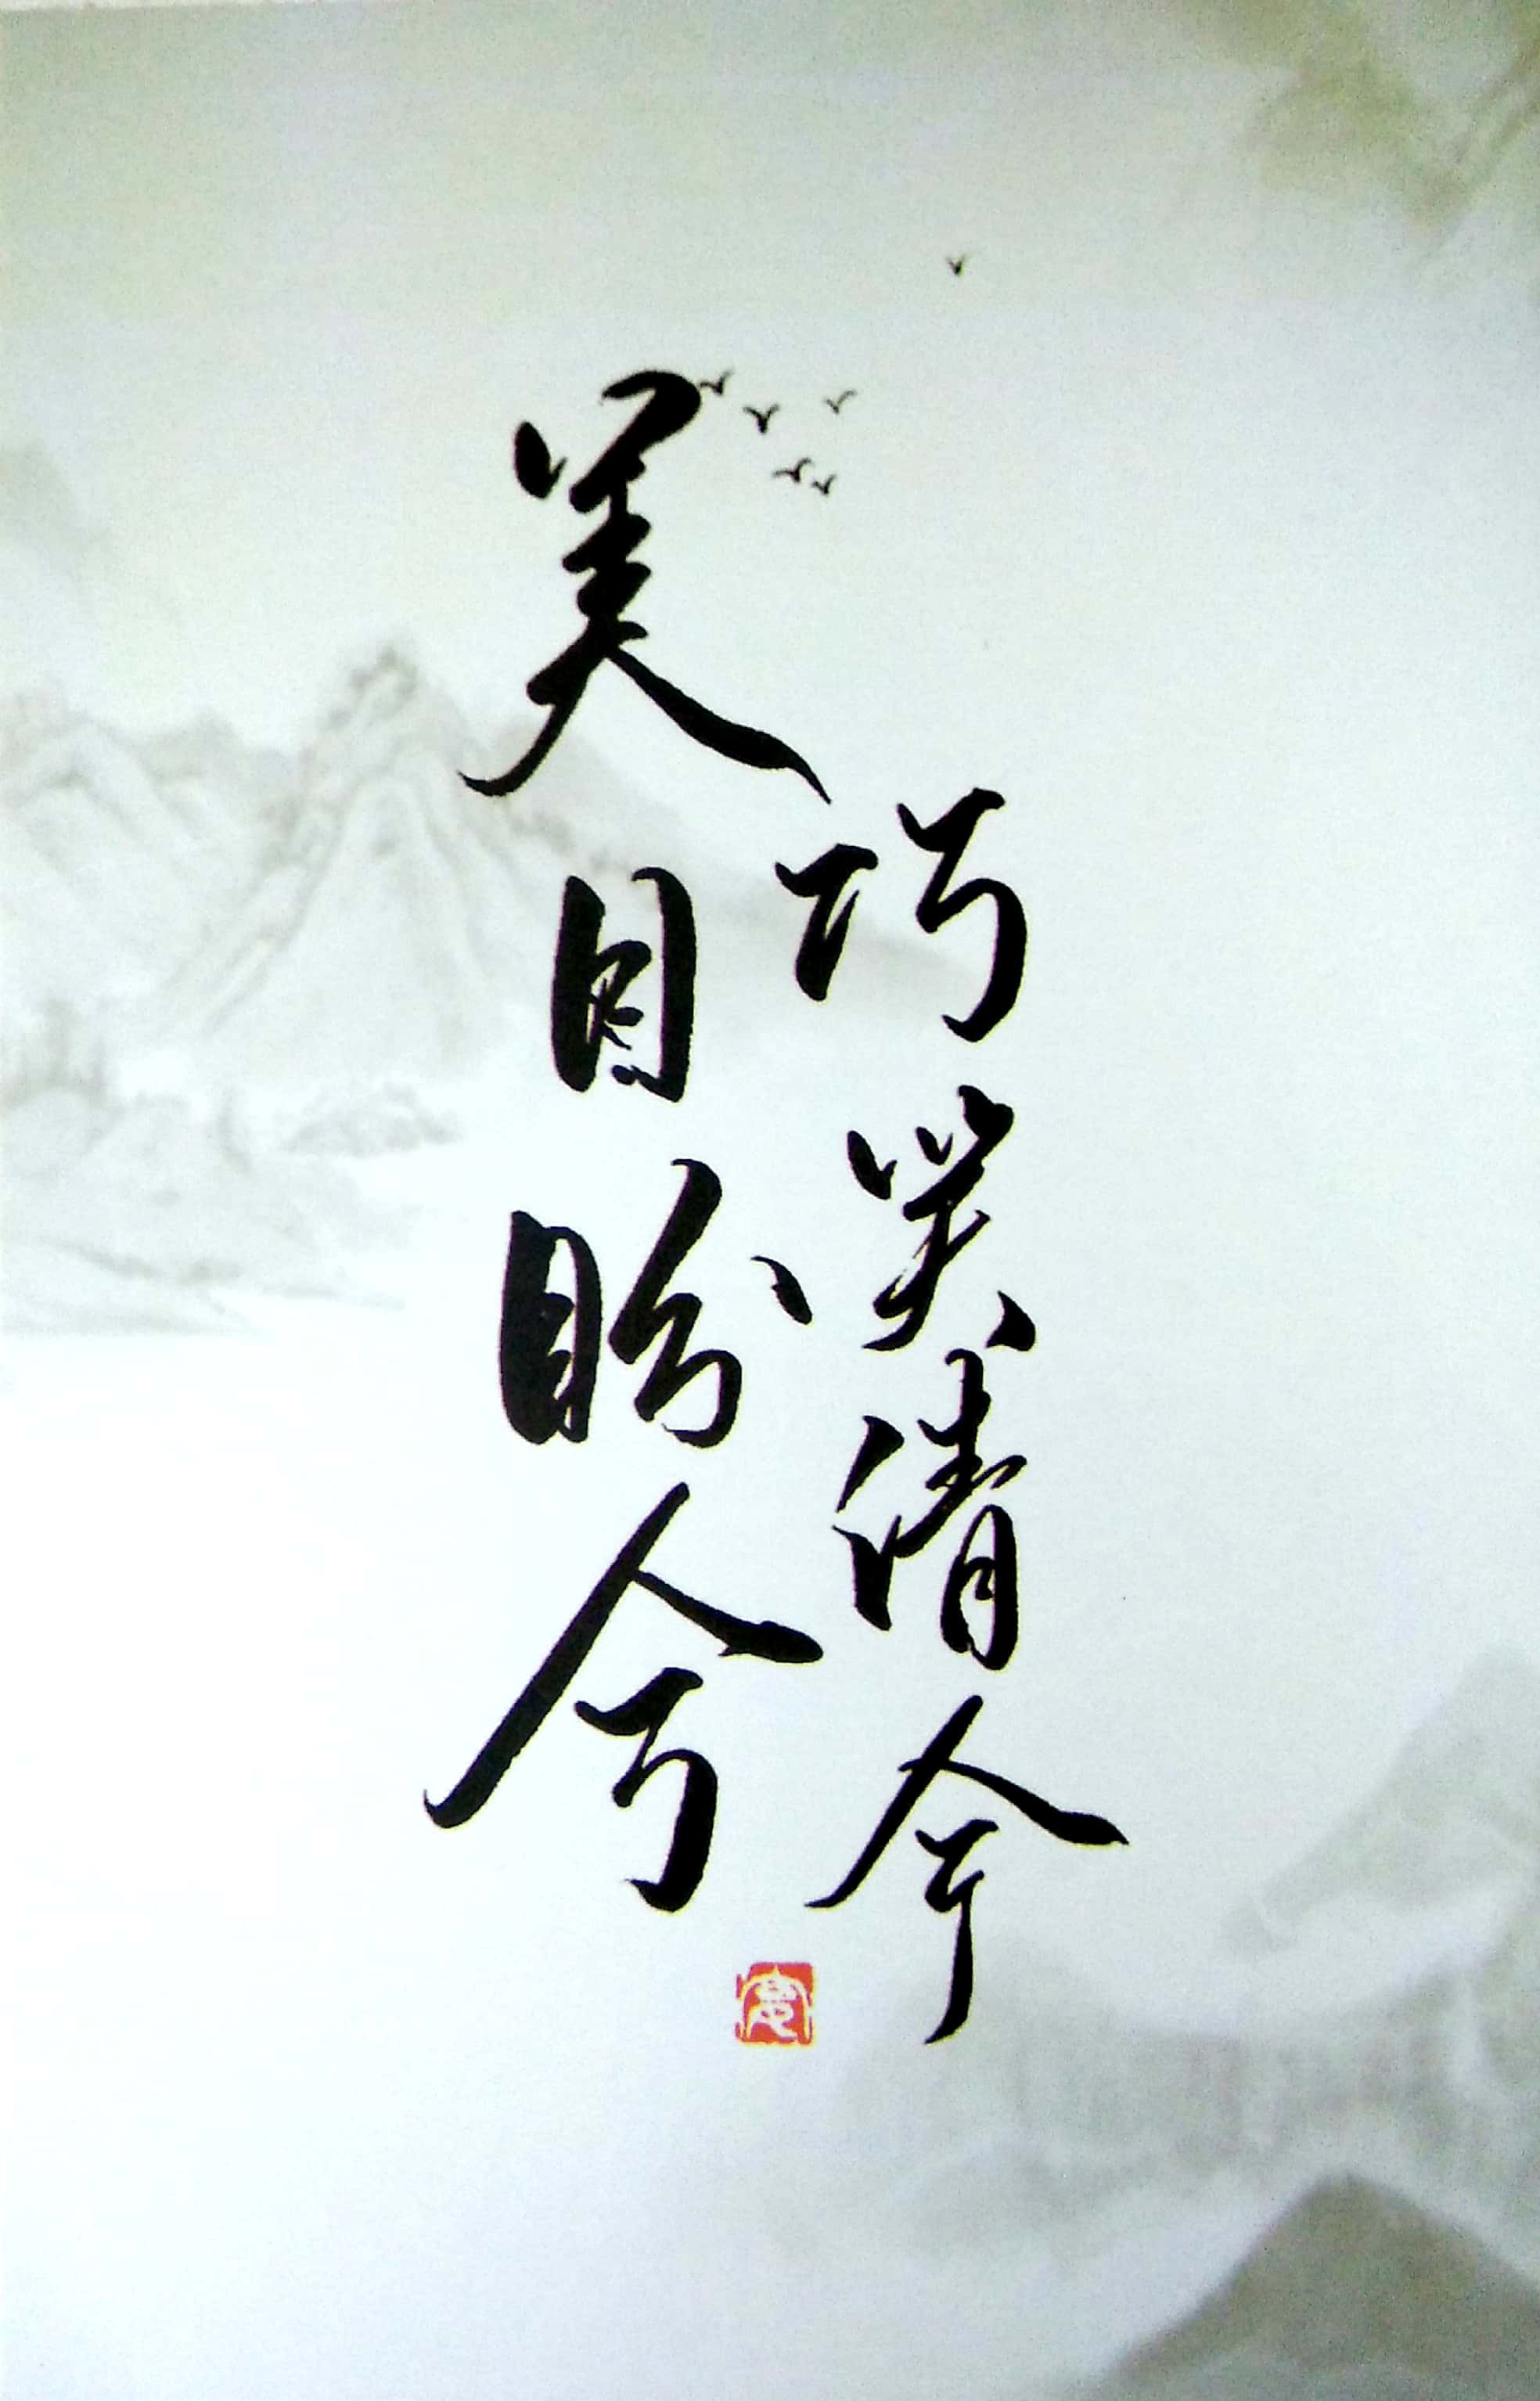 巧笑倩兮
美目盼兮